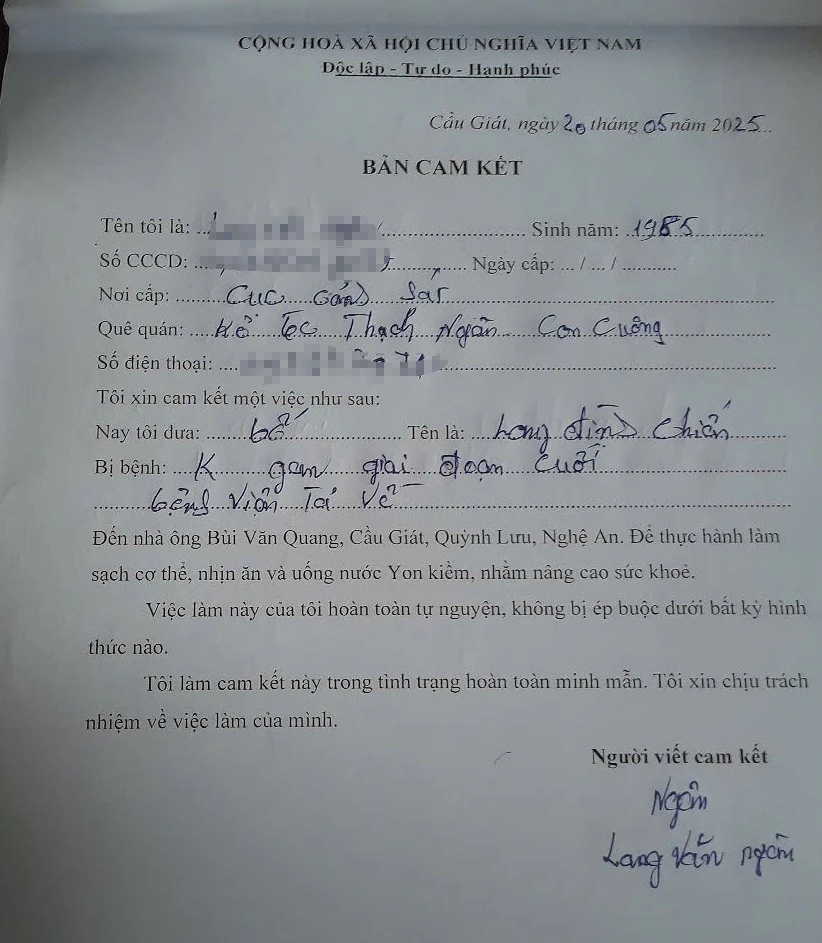 CỘNG HOÀ XÃ HỘI CHỦ NGHĨA VIỆT NAM
Độc lập - Tự do - Hạnh phúc
Cầu Giát, ngày 20 tháng 05 năm 2025...
BẢN CAM KẾT
Tên tôi là: ... Sinh năm: 1985
Số CCCD: ... Ngày cấp: ... / ... / ...
Nơi cấp: Cục
Quê quán: Kẻ Thạch Ngàn Con Cuông
Số điện thoại: ...
Tôi xin cam kết một việc như sau:
Nay tôi đưa: bố Tên là: Lang Chiến
Bị bệnh: K gan giai đoạn cuối
bệnh viện Trả về
Đến nhà ông Bùi Văn Quang, Cầu Giát, Quỳnh Lưu, Nghệ An. Để thực hành làm
sạch cơ thể, nhịn ăn và uống nước Yon kiềm, nhằm nâng cao sức khoẻ.
Việc làm này của tôi hoàn toàn tự nguyện, không bị ép buộc dưới bất kỳ hình
thức nào.
Tôi làm cam kết này trong tình trạng hoàn toàn minh mẫn. Tôi xin chịu trách
nhiệm về việc làm của mình.
Người viết cam kết
Ngôn
Lang Văn Ngôn